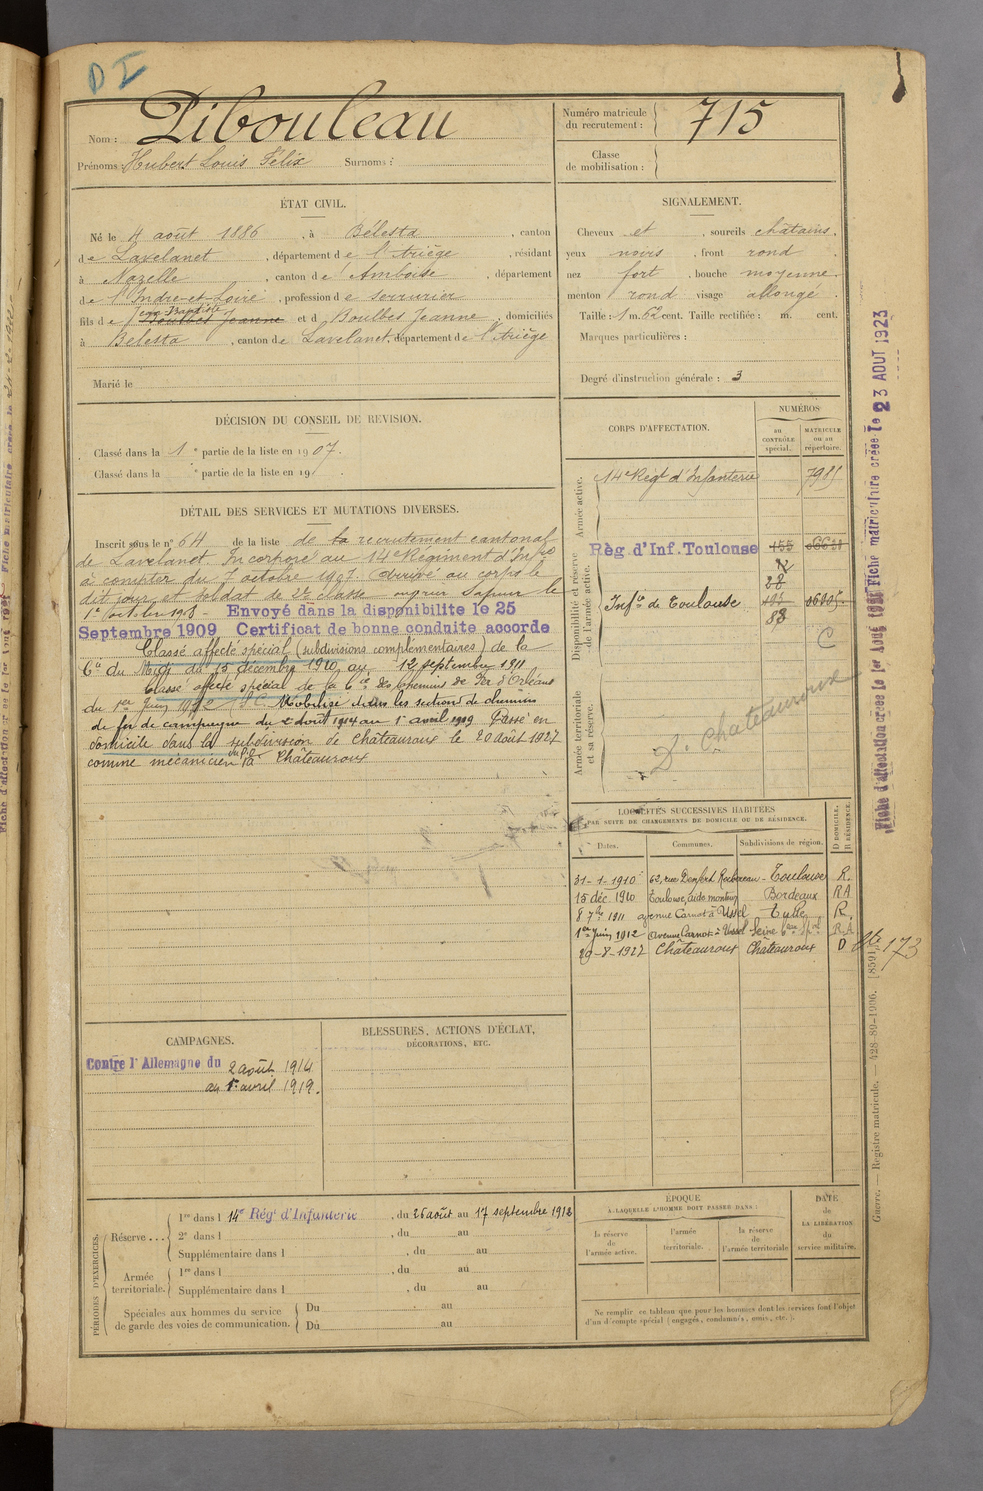 D I
Nom : Pibouleau
Prénoms Hubert Louis Félix Surnoms :
Numéro matricule du recrutement : 715
Classe de mobilisation :
ÉTAT CIVIL.
Né le 4 août 1886, à Bélesta, canton
de Lavelanet, département de l'Ariège, résidant
à Nazelle, canton de Amboise, département
de l'Indre-et-Loire, profession de serrurier
fils de Jean Baptiste et d Boulbes Jeanne, domiciliés
à Bélesta, canton de Lavelanet, département de l'Ariège
Marié le
SIGNALEMENT.
Cheveux et, sourcils châtains.
yeux noirs, front rond.
nez fort, bouche moyenne.
menton rond visage allongé.
Taille : 1 m. 62 cent. Taille rectifiée : m. cent.
Marques particulières :
Degré d'instruction générale : 3
DÉCISION DU CONSEIL DE REVISION.
Classé dans la 1e partie de la liste en 1907.
Classé dans la e partie de la liste en 19 .
DÉTAIL DES SERVICES ET MUTATIONS DIVERSES.
Inscrit sous le n° 64 de la liste de recrutement cantonal
de Lavelanet. Incorporé au 14e Régiment d'Infie
à compter du 7 octobre 1907. Arrivé au corps le
dit jour et soldat de 2e classe sapeur le
1er octobre 1908 - Envoyé dans la disponibilite le 25
Septembre 1909 Certificat de bonne conduite accorde
Classé affecté spécial (subdivisions complémentaires) de la
Cie du Midi du 15 décembre 1910 au 12 septembre 1911
Classé affecté spécial de la Cie des chemins de Fer d'Orléans
du 1er Juin 1912 Mobilisé dans les sections de chemins
de fer de campagne du 2 août 1914 au 1er avril 1919 Passé en
domicile dans la subdivision de Châteauroux le 20 Août 1927
comme mécanicien Châteauroux
CORPS D'AFFECTATION.
NUMÉROS
au CONTRÔLE spécial.
MATRICULE ou au répertoire.
Armée active.
14e Régt d'Infanterie 7985
Disponibilité et réserve de l'armée active.
Règ. d'Inf. Toulouse 155
Infie de Toulouse
88
C
Armée territoriale et sa réserve.
Dt Chateauroux
LOCALITÉS SUCCESSIVES HABITÉES
PAR SUITE DE CHANGEMENTS DE DOMICILE OU DE RÉSIDENCE.
Dates. Communes. Subdivisions de région. D DOMICILE. R RÉSIDENCE.
31-1-1910 62, rue Denfert Rochereau - Toulouse R.
15 déc. 1910 Toulouse, aide monteur Bordeaux RA
8 7bre 1911 avenue Carnot à Ussel Tulle R.
1er Juin 1912 Avenue Carnot à Ussel Seine R.A
29-8-1927 Châteauroux Châteauroux D
173
CAMPAGNES.
Contre l'Allemagne du 2 août 1914
au 1er avril 1919.
BLESSURES, ACTIONS D'ÉCLAT,
DÉCORATIONS, ETC.
PÉRIODES D'EXERCICES.
Réserve . . .
1re dans l 14e Régt d'Infanterie, du 26 août au 17 septembre 1912
2e dans l , du au
Supplémentaire dans l , du au
Armée territoriale.
1re dans l , du au
Supplémentaire dans l , du au
Spéciales aux hommes du service de garde des voies de communication.
Du au
Du au
ÉPOQUE
À LAQUELLE L'HOMME DOIT PASSER DANS :
la réserve de l'armée active.
l'armée territoriale.
la réserve de l'armée territoriale
DATE de LA LIBÉRATION du service militaire.
Ne remplir ce tableau que pour les hommes dont les services font l'objet
d'un décompte spécial (engagés, condamnés, omis, etc.).
Fiche matriculaire créée le 23 AOUT 1923
Fiche d'affectation créée le 1er Août
Guerre. — Registre matricule. — 428-89-1906. [8591]